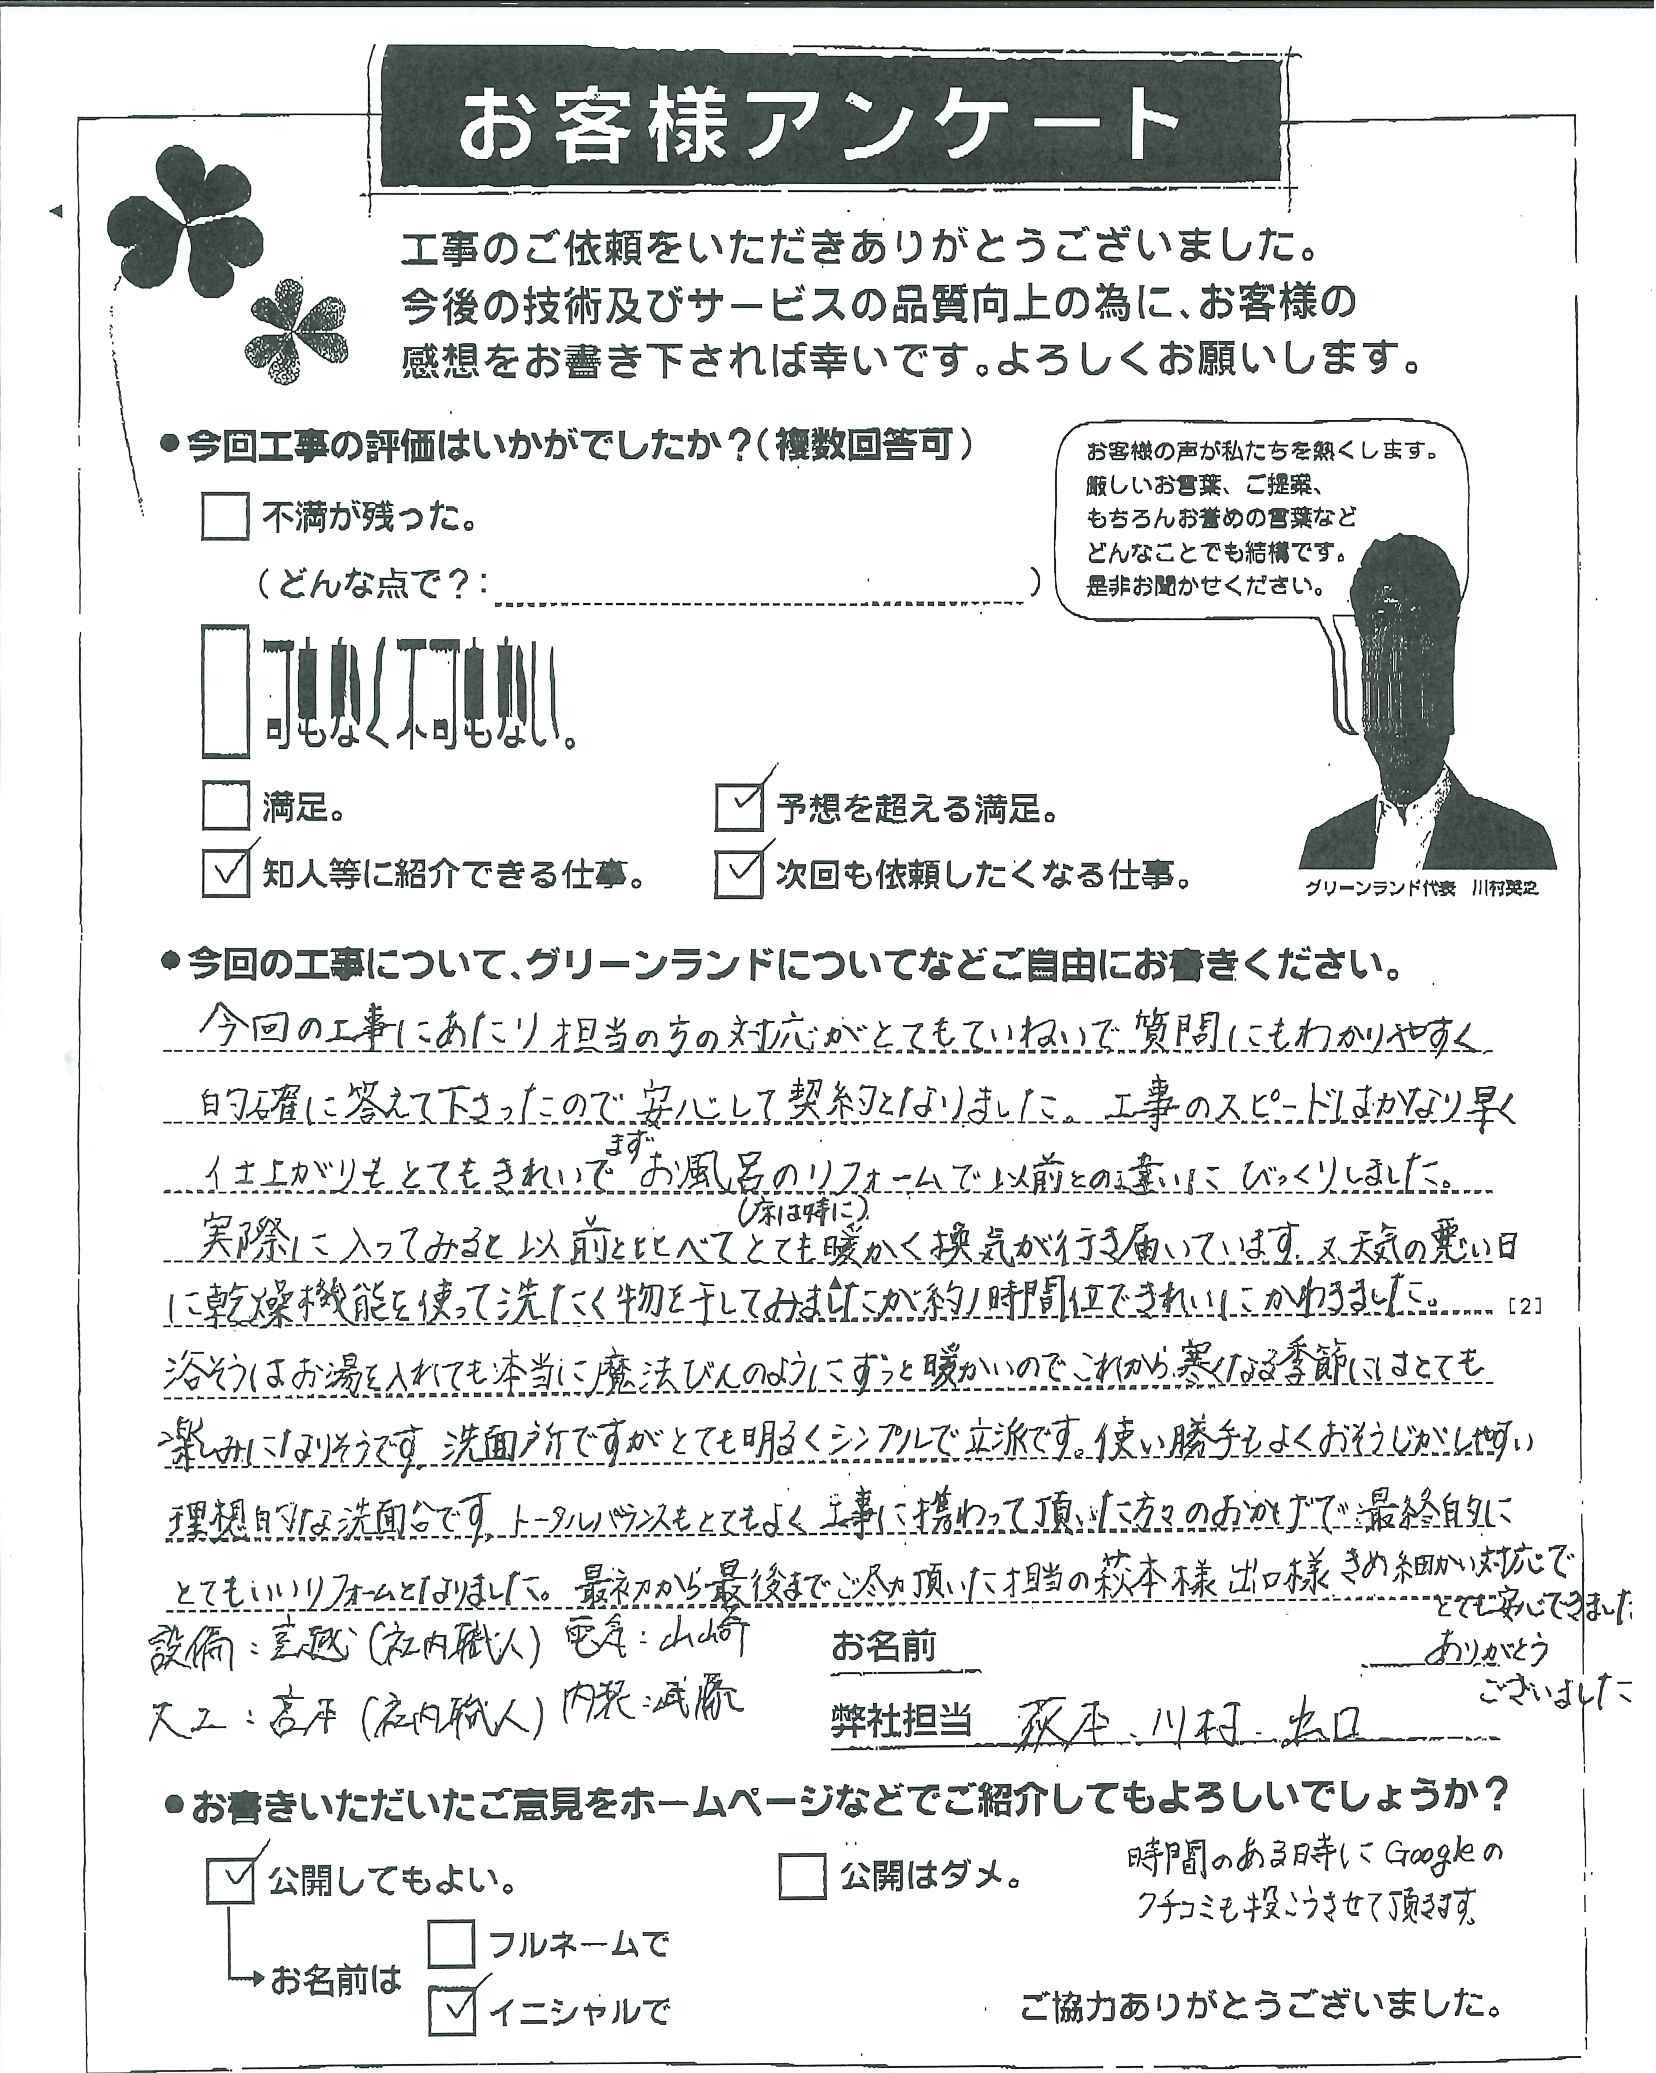 お客様アンケート
工事のご依頼をいただきありがとうございました。
今後の技術及びサービスの品質向上の為に、お客様の
感想をお書き下されば幸いです。よろしくお願いします。
●今回工事の評価はいかがでしたか?(複数回答可)
不満が残った。
(どんな点で?: )
可もなく不可もない。
満足。
予想を超える満足。
知人等に紹介できる仕事。
次回も依頼したくなる仕事。
お客様の声が私たちを熱くします。
厳しいお言葉、ご提案、
もちろんお誉めの言葉など
どんなことでも結構です。
是非お聞かせください。
グリーンランド代表 川村
●今回の工事について、グリーンランドについてなどご自由にお書きください。
今回の工事にあたり担当の方の対応がとてもていねいで質問にもわかりやすく
的確に答えて下さったので安心して契約となりました。工事のスピードはかなり早く
仕上がりもとてもきれいでまずお風呂のリフォームで以前との違いにびっくりしました。
実際に入ってみると以前と比べてとても(床は特に)暖かく換気が行き届いています。又、天気の悪い日
に乾燥機能を使って洗たく物を干してみましたが約1時間位できれいにかわきました。 [2]
浴そうはお湯を入れても本当に魔法びんのようにずっと暖かいのでこれから寒くなる季節にはとても
楽しみになりそうです。洗面所ですがとても明るくシンプルで立派です。使い勝手もよくおそうじがしやすい
理想的な洗面台です。トータルバランスもとてもよく工事に携わって頂いた方々のおかげで最終的に
とてもいいリフォームとなりました。最初から最後までご尽力頂いた担当の萩本様出口様きめ細かい対応で
とても安心できました
ありがとう
ございました
設備:(社内職人) 電気:山崎
大工:(社内職人) 内装:武藤
お名前
弊社担当 萩本・川村・出口
●お書きいただいたご意見をホームページなどでご紹介してもよろしいでしょうか?
公開してもよい。
公開はダメ。
時間のある時にGoogleの
クチコミも投こうさせて頂きます。
お名前は
フルネームで
イニシャルで
ご協力ありがとうございました。